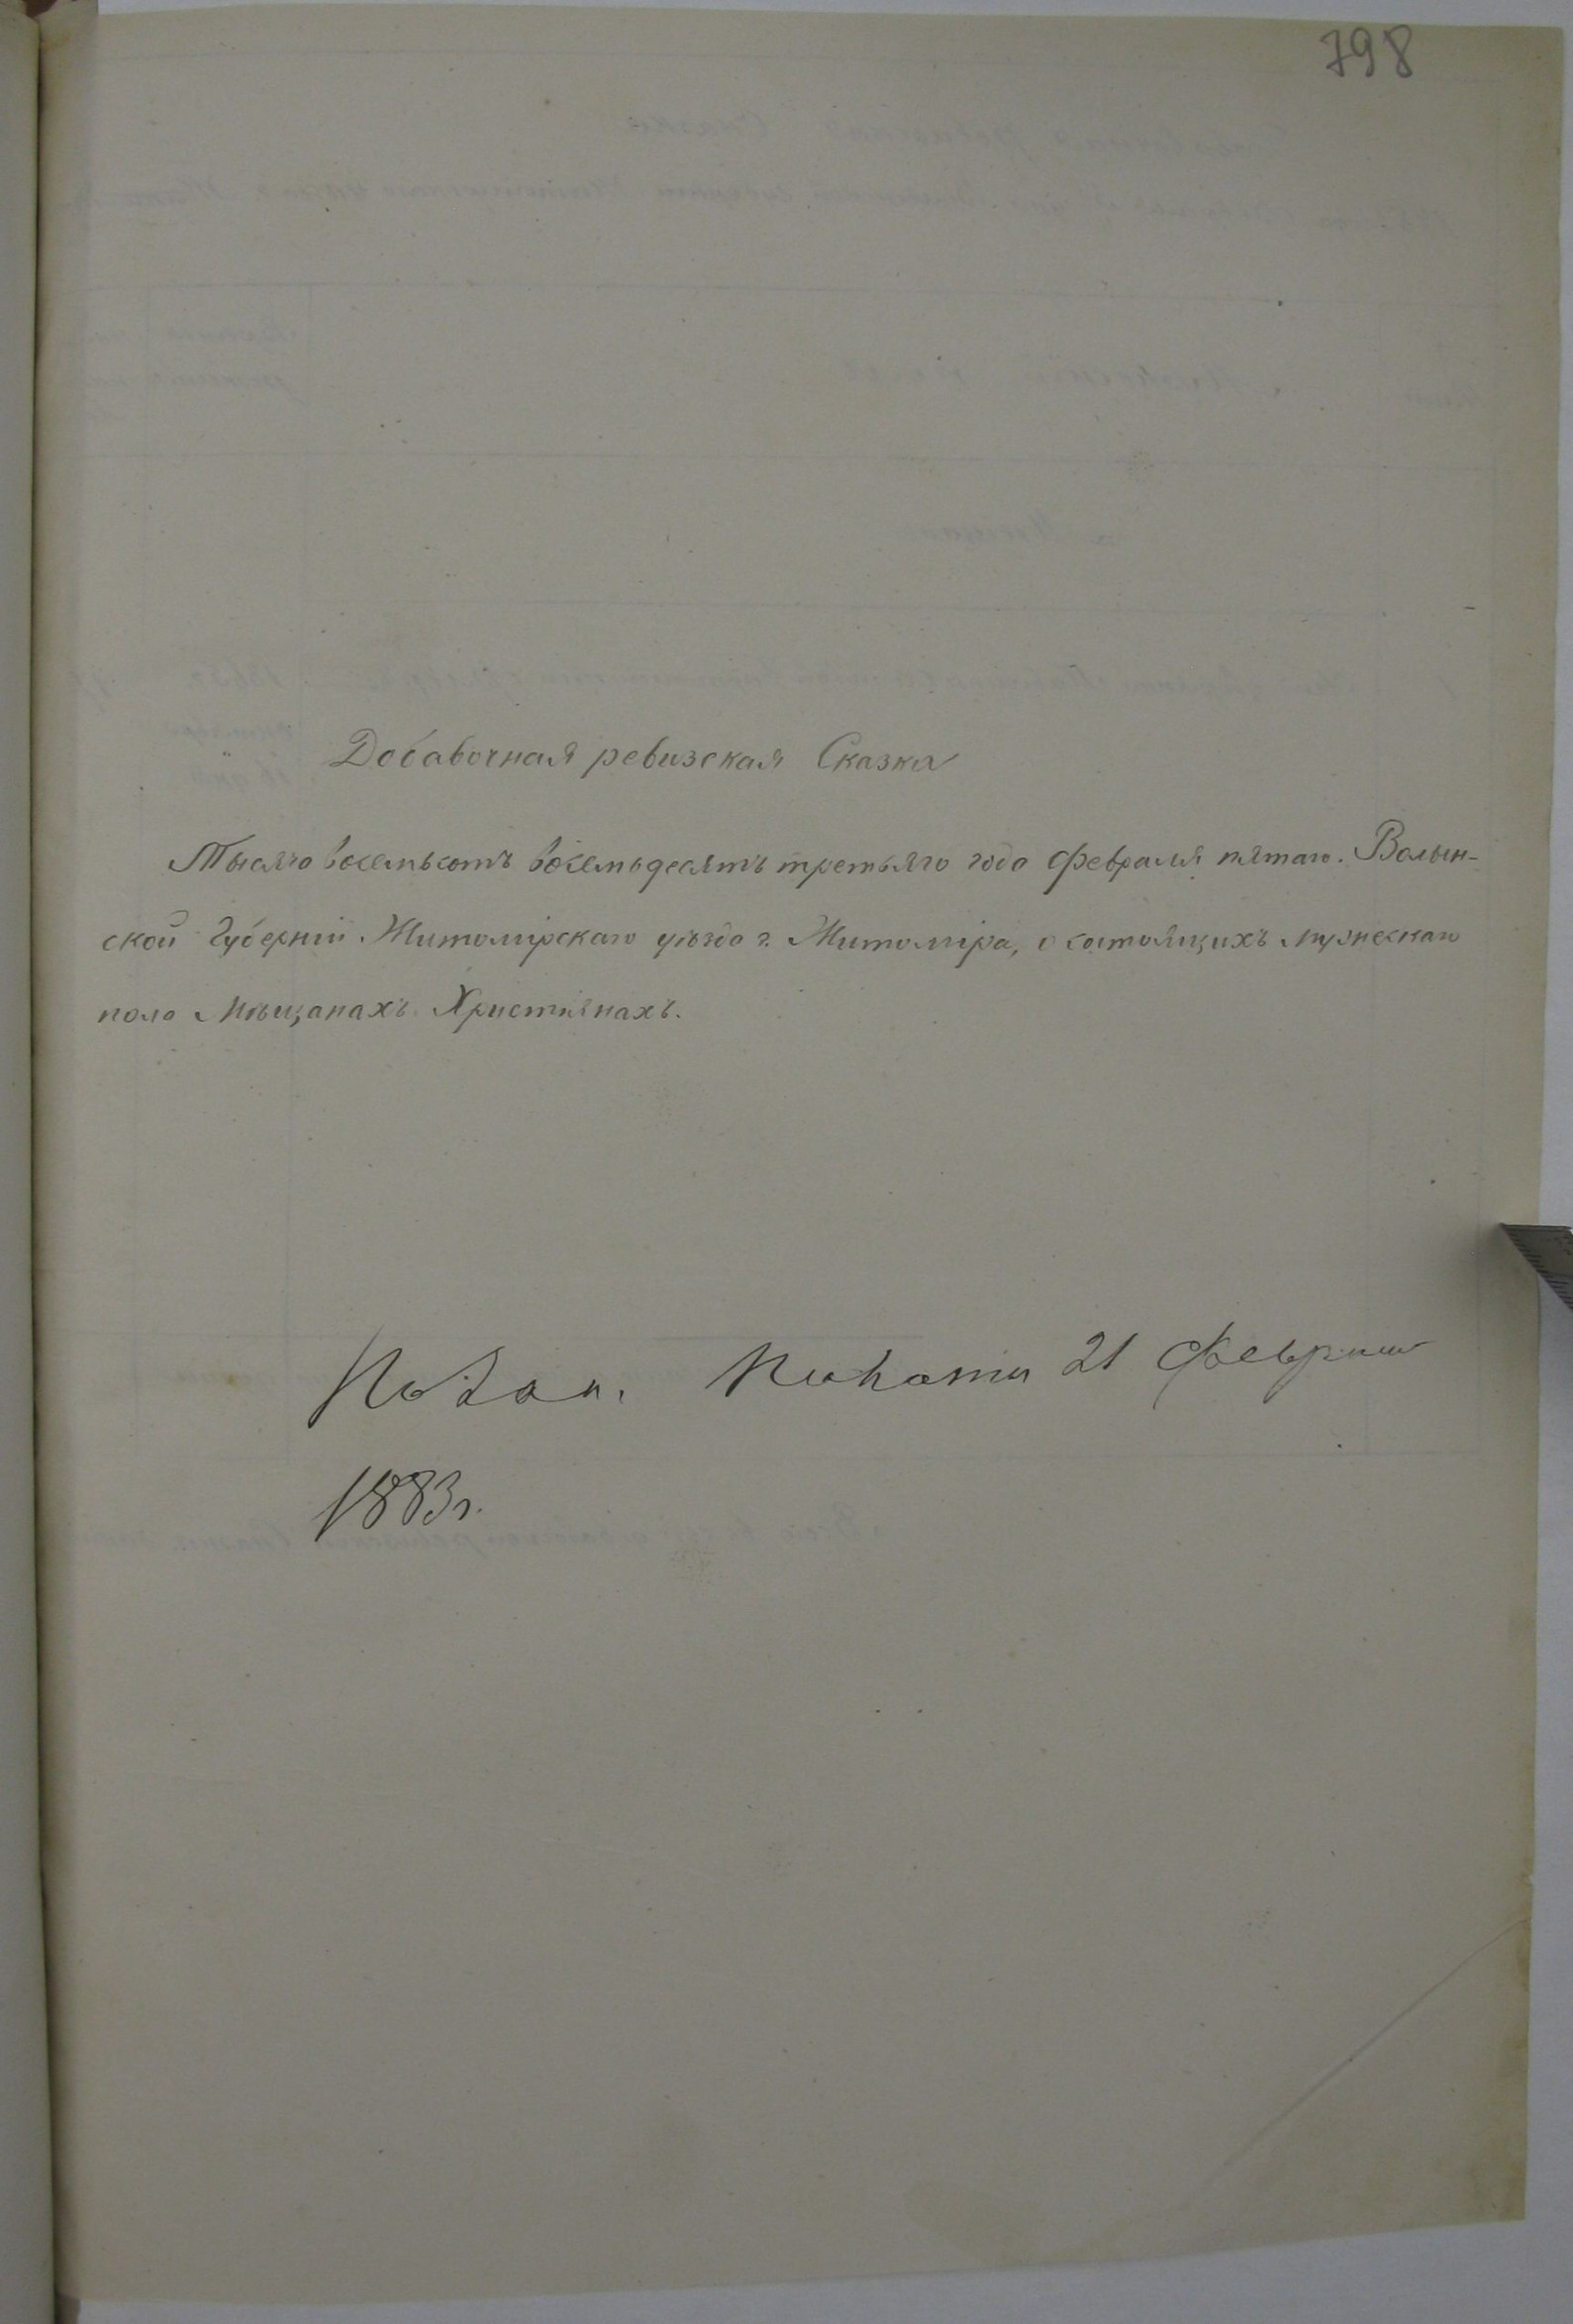 798
Добавочная ревизская Сказка
Тысяча восемьсотъ восемьдесятъ третьяго года Февраля пятаго. Волын-
ской Губерніи Житомірскаго уѣзда г. Житоміра, о состоящихъ мужескаго
пола Мѣщанахъ Христіянахъ.
21 Февраля
1883 г.